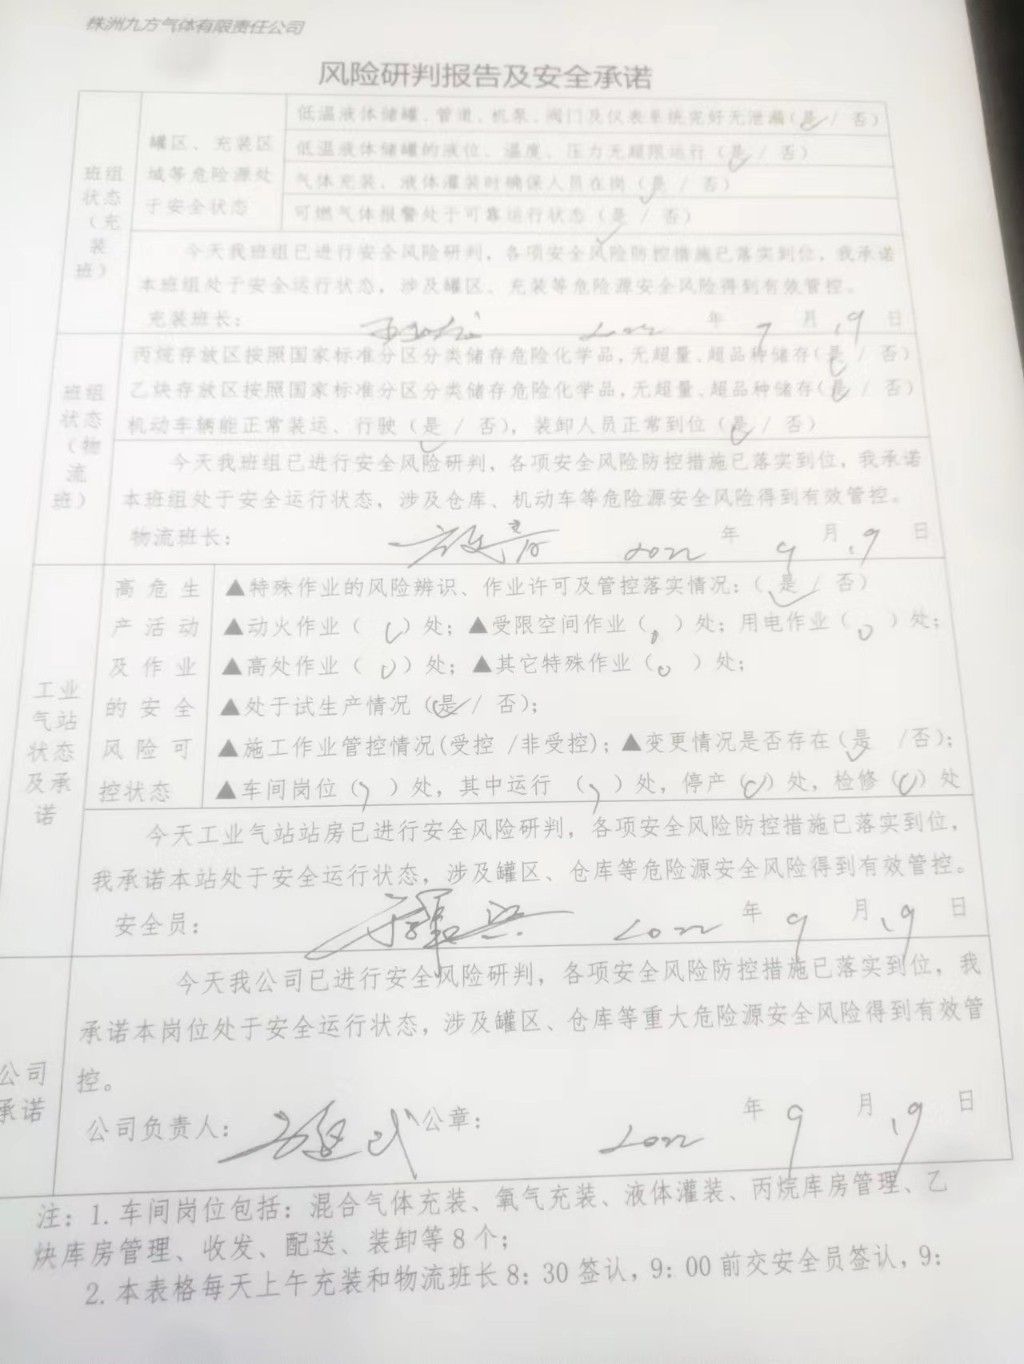 株洲九方气体有限责任公司
风险研判报告及安全承诺
班组状态（充装班）
罐区、充装区域等危险源处于安全状态
低温液体储罐、管道、机泵、阀门及仪表系统完好无泄漏（是 / 否）
低温液体储罐的液位、温度、压力无超限运行（是 / 否）
气体充装、液体灌装时确保人员在岗（是 / 否）
可燃气体报警处于可靠运行状态（是 / 否）
今天我班组已进行安全风险研判，各项安全风险防控措施已落实到位，我承诺
本班组处于安全运行状态，涉及罐区、充装等危险源安全风险得到有效管控。
充装班长： 2022 年 9 月 19 日
班组状态（物流班）
丙烷存放区按照国家标准分区分类储存危险化学品，无超量、超品种储存（是 / 否）
乙炔存放区按照国家标准分区分类储存危险化学品，无超量、超品种储存（是 / 否）
机动车辆能正常装运、行驶（是 / 否），装卸人员正常到位（是 / 否）
今天我班组已进行安全风险研判，各项安全风险防控措施已落实到位，我承诺
本班组处于安全运行状态，涉及仓库、机动车等危险源安全风险得到有效管控。
物流班长： 2022 年 9 月 19 日
工业气站状态及承诺
高危生产活动及作业的安全风险可控状态
▲特殊作业的风险辨识、作业许可及管控落实情况：（是 / 否）
▲动火作业（ 0 ）处；▲受限空间作业（ ）处；用电作业（ 0 ）处；
▲高处作业（ 0 ）处；▲其它特殊作业（ 0 ）处；
▲处于试生产情况（是 / 否）；
▲施工作业管控情况(受控 /非受控)；▲变更情况是否存在（是 /否）；
▲车间岗位（ ）处，其中运行 （ ）处，停产（ 0 ）处，检修（ 0 ）处
今天工业气站站房已进行安全风险研判，各项安全风险防控措施已落实到位，
我承诺本站处于安全运行状态，涉及罐区、仓库等危险源安全风险得到有效管控。
安全员： 2022 年 9 月 19 日
公司承诺
今天我公司已进行安全风险研判，各项安全风险防控措施已落实到位，我
承诺本岗位处于安全运行状态，涉及罐区、仓库等重大危险源安全风险得到有效管
控。
公司负责人： 公章： 2022 年 9 月 19 日
注：1.车间岗位包括：混合气体充装、氧气充装、液体灌装、丙烷库房管理、乙
炔库房管理、收发、配送、装卸等8个；
2.本表格每天上午充装和物流班长8：30签认，9：00前交安全员签认，9：